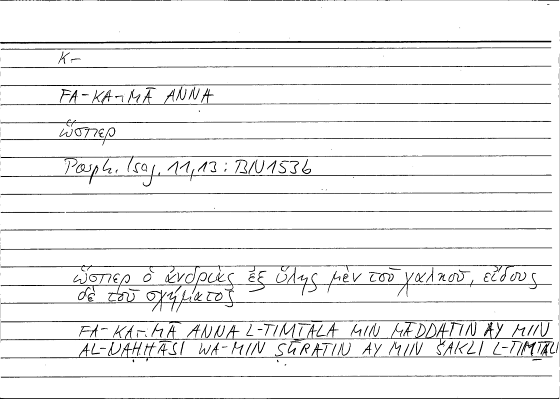 K-
FA-KA-MĀ ANNA
ὥσπερ
Porph. Isag. 11,13 : BN1536
ὥσπερ ὁ ἀνδριὰς ἐξ ὕλης μὲν τοῦ χαλκοῦ, εἴδους
δὲ τοῦ σχήματος
FA-KA-MĀ ANNA L-TIMṮĀLA MIN MĀDDATIN AY MIN
AL-NAḤḤĀSI WA-MIN ṢŪRATIN AY MIN ŠAKLI L-TIMṮĀLI